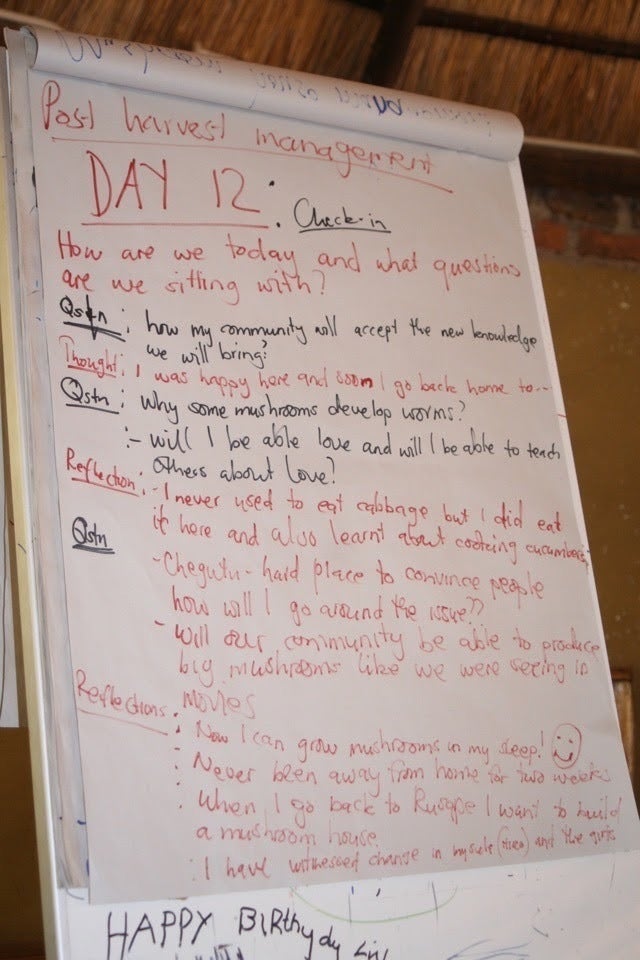 Post harvest management
DAY 12 : Check-in
How are we today and what questions
are we sitting with?
Qstn : how my community will accept the new knowledge
we will bring?
Thought : I was happy here and soon I go back home to...
Qstn : Why some mushrooms develop worms?
:- will I be able love and will I be able to teach
others about love?
Reflection : - I never used to eat cabbage but I did eat
it here and also learnt about cooking cucumbers
Qstn
- Chegutu - hard place to convince people
how will I go around the issue??
- Will our community be able to produce
big mushrooms like we were seeing in
movies
Reflections : Now I can grow mushrooms in my sleep!
: Never been away from home for two weeks
: When I go back to Rusape I want to build
a mushroom house
: I have witnessed change in and the girls
HAPPY BIRthydy